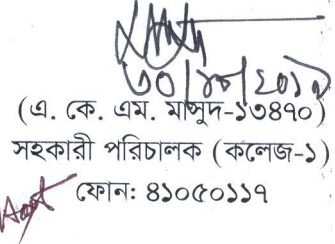 ৩০/১০/২০১৯
(এ. কে. এম. মাসুদ-১৩৪৭০)
সহকারী পরিচালক (কলেজ-১)
ফোন: ৪১০৫০১১৭